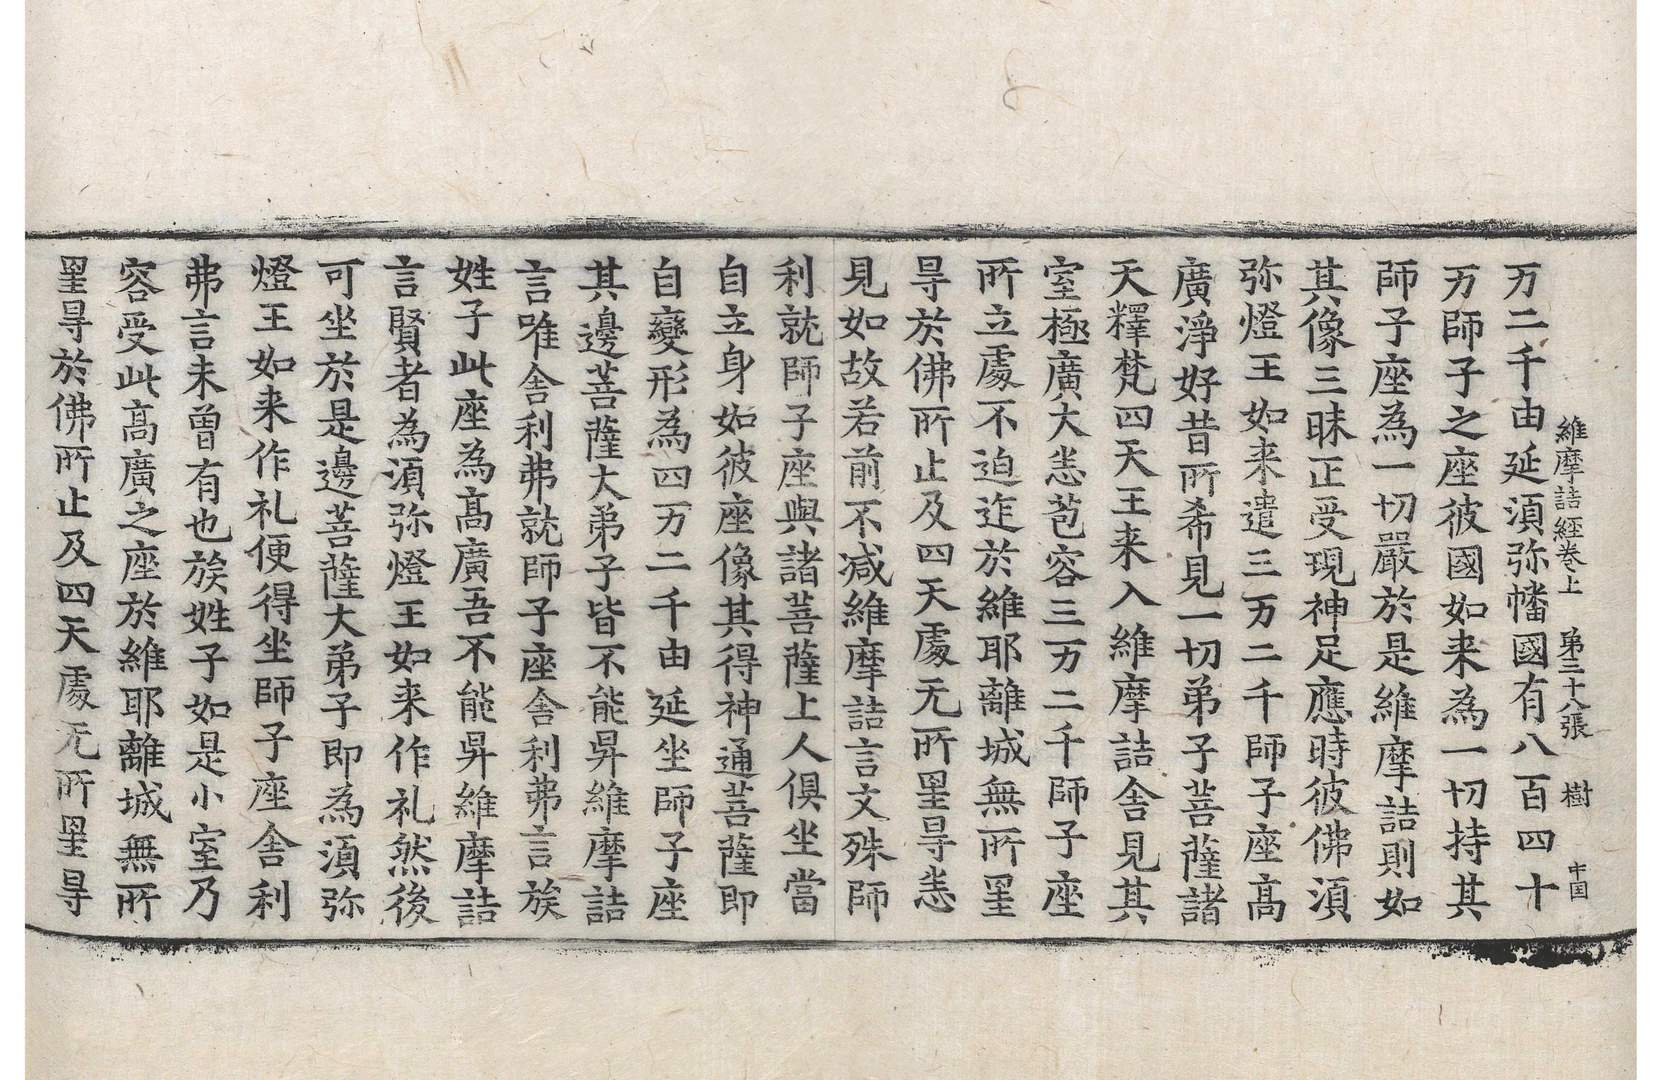 維摩詰經卷上　第三十八張　樹　中囯
万二千由延湏弥幡國有八百四十
万師子之座彼國如来為一切持其
師子座為一切嚴於是維摩詰則如
其像三昧正受現神足應時彼佛湏
弥燈王如来遣三万二千師子座髙
廣淨好昔所希見一切弟子菩薩諸
天釋梵四天王来入維摩詰舍見其
室極廣大恙苞容三万二千師子座
所立處不迫迮於維耶離城無所罣
㝵於佛所止及四天處无所罣㝵恙
見如故若前不减維摩詰言文殊師
利就師子座與諸菩薩上人俱坐當
自立身如彼座像其得神通菩薩即
自變形為四万二千由延坐師子座
其邊菩薩大弟子皆不能昇維摩詰
言唯舍利弗就師子座舍利弗言族
姓子此座為髙廣吾不能昇維摩詰
言賢者為湏弥燈王如来作礼然後
可坐於是邊菩薩大弟子即為湏弥
燈王如来作礼便得坐師子座舍利
弗言未曾有也族姓子如是小室乃
容受此髙廣之座於維耶離城無所
罣㝵於佛所止及四天處无所罣㝵